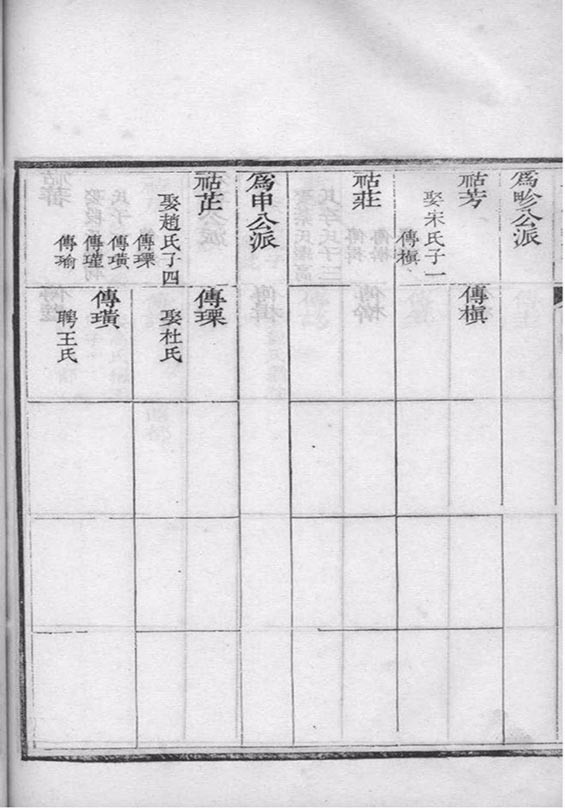 為畛公派
祜芳
娶宋氏子一
傳槙
傳槙
祜莊
為申公派
祜芷
娶趙氏子四
傳瑮
傳璜
傳瑾
傳瑜
傳瑮
娶杜氏
傳璜
聘王氏